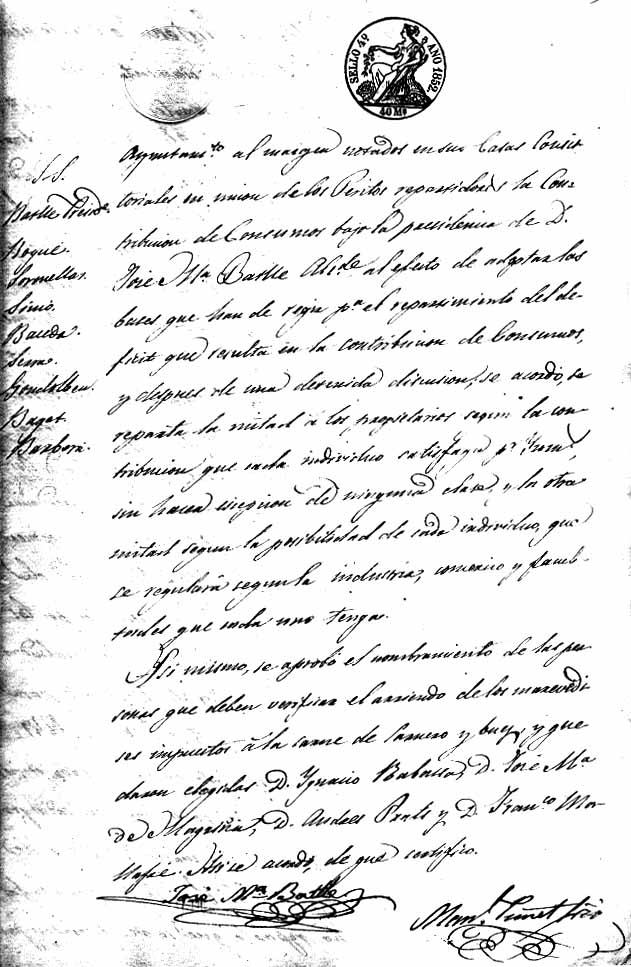 SELLO 4º AÑO 1852.
40 Mˢ
S. S.
Batlle Presid.ᵗᵉ
Roqué.
Tornellas.
Simó.
Baceda.
Serra.
Baget.
Barberá.
Ayuntam.ᵗᵒ al margen notados en sus Casas Consis
toriales en union de los Peritos repartidores la Con-
tribucion de Consumos bajo la presidencia de D.
José Mª Batlle Alc.ᵈᵉ al efecto de adoptar las
bases que han de regir pª el repartimiento del de-
ficit que resulta en la contribucion de Consumos,
y despues de una detenida discusion, se acordó, se
reparta la mitad á los propietarios segun la con
tribucion que cada individuo satisfaga pʳ
sin hacer escepcion de ninguna clase, y la otra
mitad segun la posibilidad de cada individuo, que
se regulará segun la industria, comercio y facul-
tades que cada uno tenga.
Asi mismo, se aprobó el nombramiento de las per
sonas que deben verificar el arriendo de los maravedi
ses impuestos á la carne de carnero y buey, y que
daron elegidas D. Ignacio Rabassa, D. José Mª
de Magriñá, D. Andres Prats y D. Franᶜᵒ Mo-
Asi se acordó, de que certifico.
José Mª Batlle
Man.ˡ Srio